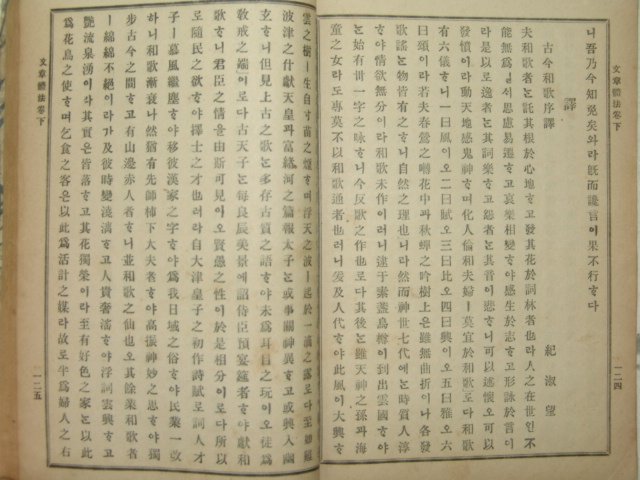 니吾乃今知免矣와라旣而讒言이果不行ᄒᆞ다
譯
古今和歌序譯
紀淑望
夫和歌者는託其根於心地ᄒᆞ고發其花於詞林者也라人之在世인不
能無爲 思慮易遷ᄒᆞ고哀樂相變ᄒᆞ야感生於志ᄒᆞ고形詠於言이
라是以로逸者는其詞樂ᄒᆞ고怨者는其音이悲ᄒᆞ니可以述懷오可以
發憤이라動天地感鬼神ᄒᆞ며化人倫和夫婦ㅣ莫宜於和歌로다和歌
有六儀ᄒᆞ니一曰風이오二曰賦오三曰比오四曰興이오五曰雅오六
曰頌이라若夫春鶯之囀花中과秋蟬之吟樹上은雖無曲折이나各發
歌謠는物皆有之ᄒᆞ니自然之理也니라然而神世七代에는時質人淳
ᄒᆞ야情欲無分이라和歌未作이러니逮于素盞烏尊이到出雲國ᄒᆞ야
는始有卅一字之咏ᄒᆞ니今反歌之作也로다其後는雖天神之孫과海
童之女라도專莫不以和歌通者也러니爰及人代ᄒᆞ야此風이大興ᄒᆞ
文章體法卷下
一二四
雲之樹ㅣ生自寸苗之煙ᄒᆞ며浮天之波ㅣ起於一滴之露로다至如難
波津之什獻天皇과富緖河之篇報太子는或事關神異ᄒᆞ고或興入幽
玄ᄒᆞ니但見上古之歌는多存古質之語ᄒᆞ야未爲耳目之玩이오徒爲
敎戒之端이로다古天子는每良辰美景에詔侍臣預宴筵者ᄒᆞ야獻和
歌ᄒᆞ니君臣之情을由斯可見이오賢愚之性이於是相分이로다所以
로隨民之欲ᄒᆞ야擇士之才也러라自大津皇子之初作詩賦로詞人才
子ㅣ慕風繼塵ᄒᆞ야移彼漢家之字ᄒᆞ야爲我日域之俗ᄒᆞ야民業一改
ᄒᆞ니和歌漸衰나然猶有先師柿下大夫者ᄒᆞ니高振神妙之思ᄒᆞ야獨
步古今之間ᄒᆞ고有山邊赤人者ᄒᆞ니並和歌之仙也오其餘業和歌者
ㅣ綿綿不絕이라가及彼時變澆漓ᄒᆞ고人貴奢淫ᄒᆞ야浮詞雲興ᄒᆞ고
艶流泉湧이라其實은皆落ᄒᆞ고其花獨榮이라至有好色之家는以此
爲花鳥之使ᄒᆞ며乞食之客은以此爲活計之媒라故로半爲婦人之右
文章體法卷下
一二五